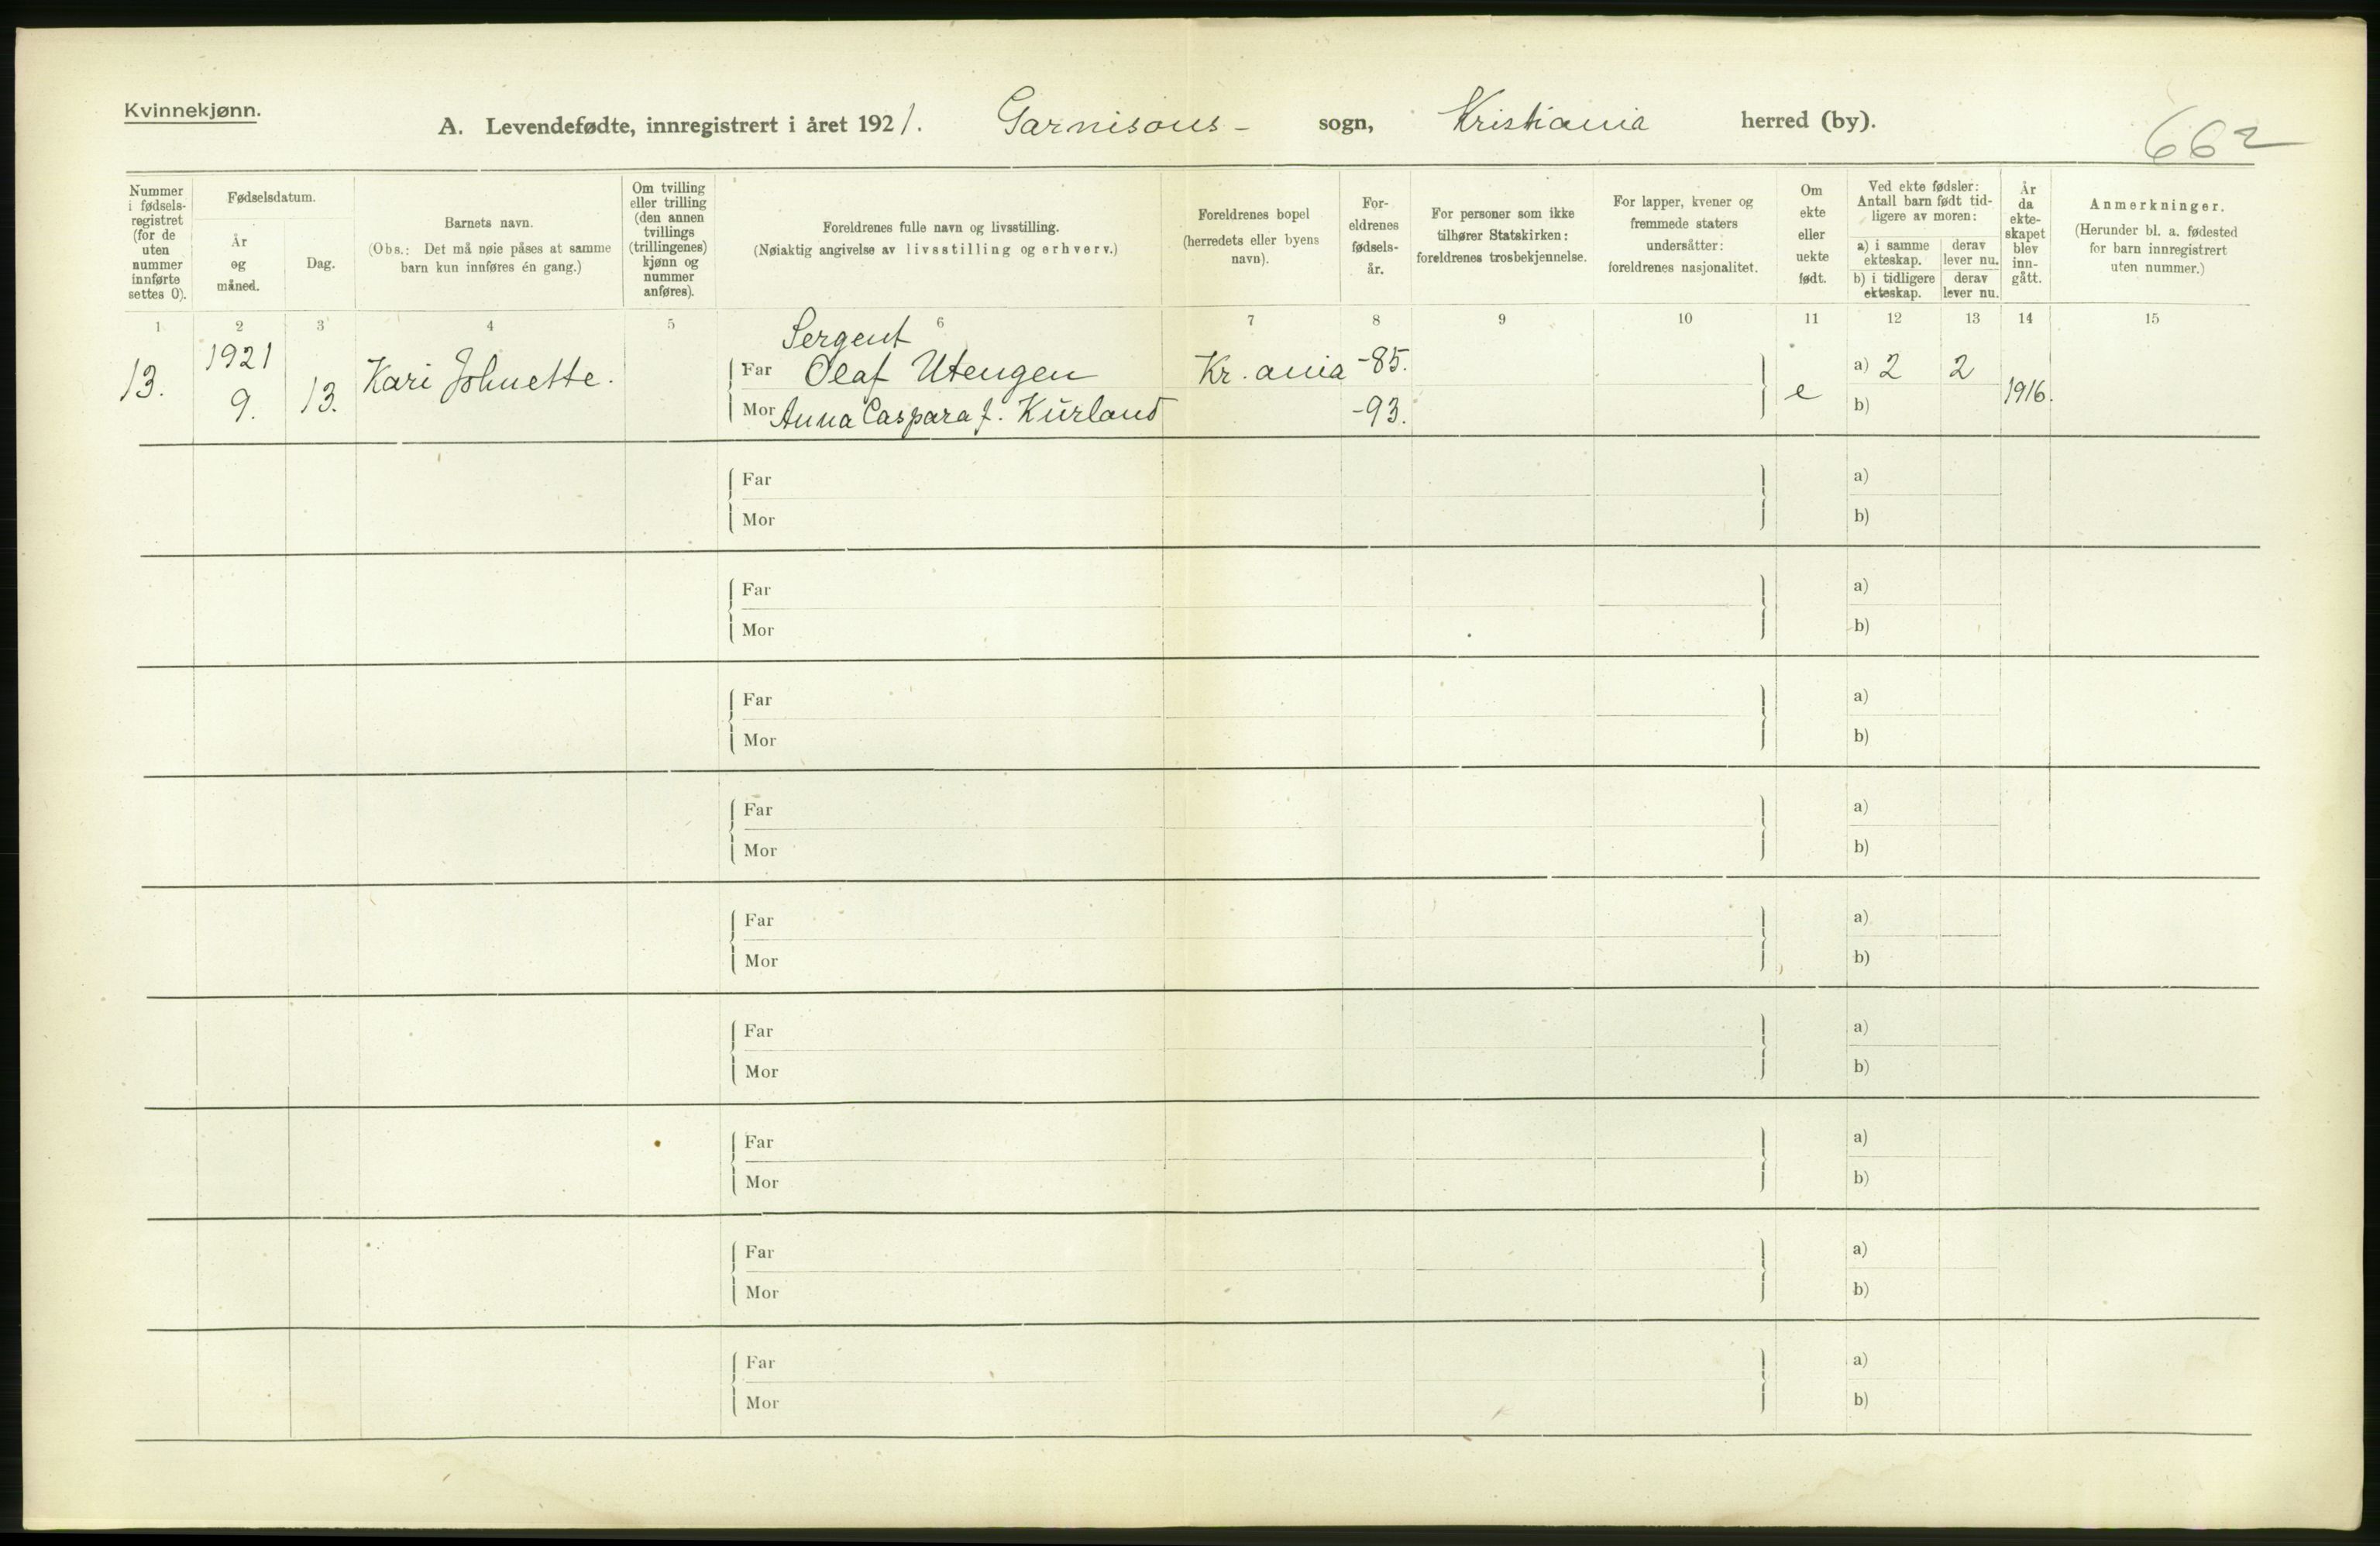 Kvinnekjønn.
A. Levendefødte, innregistrert i året 1921. Garnisons- sogn, Kristiania herred (by).
662
Nummer i fødsels-registret (for de uten nummer innførte settes 0).
Fødselsdatum.
År og måned.
Dag.
Barnets navn.
(Obs.: Det må nøie påses at samme barn kun innføres én gang.)
Om tvilling eller trilling (den annen tvillings (trillingenes) kjønn og nummer anføres).
Foreldrenes fulle navn og livsstilling.
(Nøiaktig angivelse av livsstilling og erhverv.)
Foreldrenes bopel (herredets eller byens navn).
For-eldrenes fødsels-år.
For personer som ikke tilhører Statskirken: foreldrenes trosbekjennelse.
For lapper, kvener og fremmede staters undersåtter: foreldrenes nasjonalitet.
Om ekte eller uekte født.
Ved ekte fødsler: Antall barn født tid-ligere av moren:
a) i samme ekteskap.
derav lever nu.
b) i tidligere ekteskap.
derav lever nu.
År da ekte-skapet blev inn-gått.
Anmerkninger.
(Herunder bl. a. fødested for barn innregistrert uten nummer.)
1 2 3 4 5 6 7 8 9 10 11 12 13 14 15
Sergent
13. 1921 9. 13. Kari Johnette. Far Olaf Utengen Kr.ania -85. e a) 2 2 1916.
Mor Anna Caspara f. Kürland -93. b)
Far a)
Mor b)
Far a)
Mor b)
Far a)
Mor b)
Far a)
Mor b)
Far a)
Mor b)
Far a)
Mor b)
Far a)
Mor b)
Far a)
Mor b)
Far a)
Mor b)